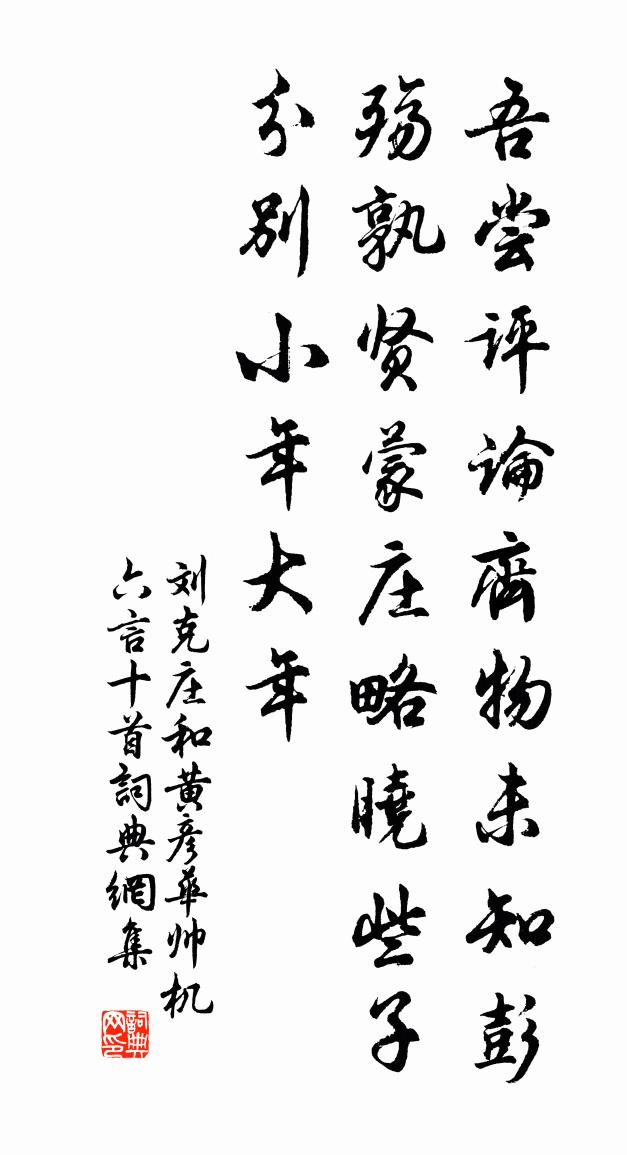 吾尝评論齊物未知彭
殇孰贤蒙庄略曉些子
分别小年大年
刘克庄和黄彦華帅机
六言十首詞典網集
詞典网印